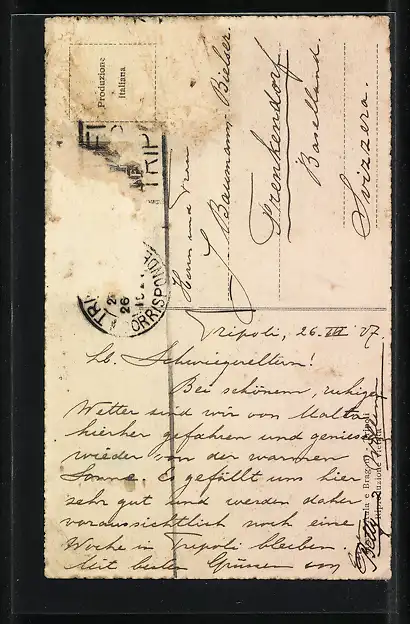 Produzione
Italiana
TRIP
26
ORRISPONDEN
Herrn und Frau
J. Baumann-Bielser.
Frenkendorf
Baselland.
Svizzera.
Tripoli, 26. III 27.
Lb. Schwiegereltern!
Bei schönem, ruhigen
Wetter sind wir von Malta
hierher gefahren und geniessen
wieder von der warmen
Sonne. Es gefällt uns hier
sehr gut und werden daher
voraussichtlich noch eine
Woche in Tripoli bleiben
Mit besten Grüssen von
Betty